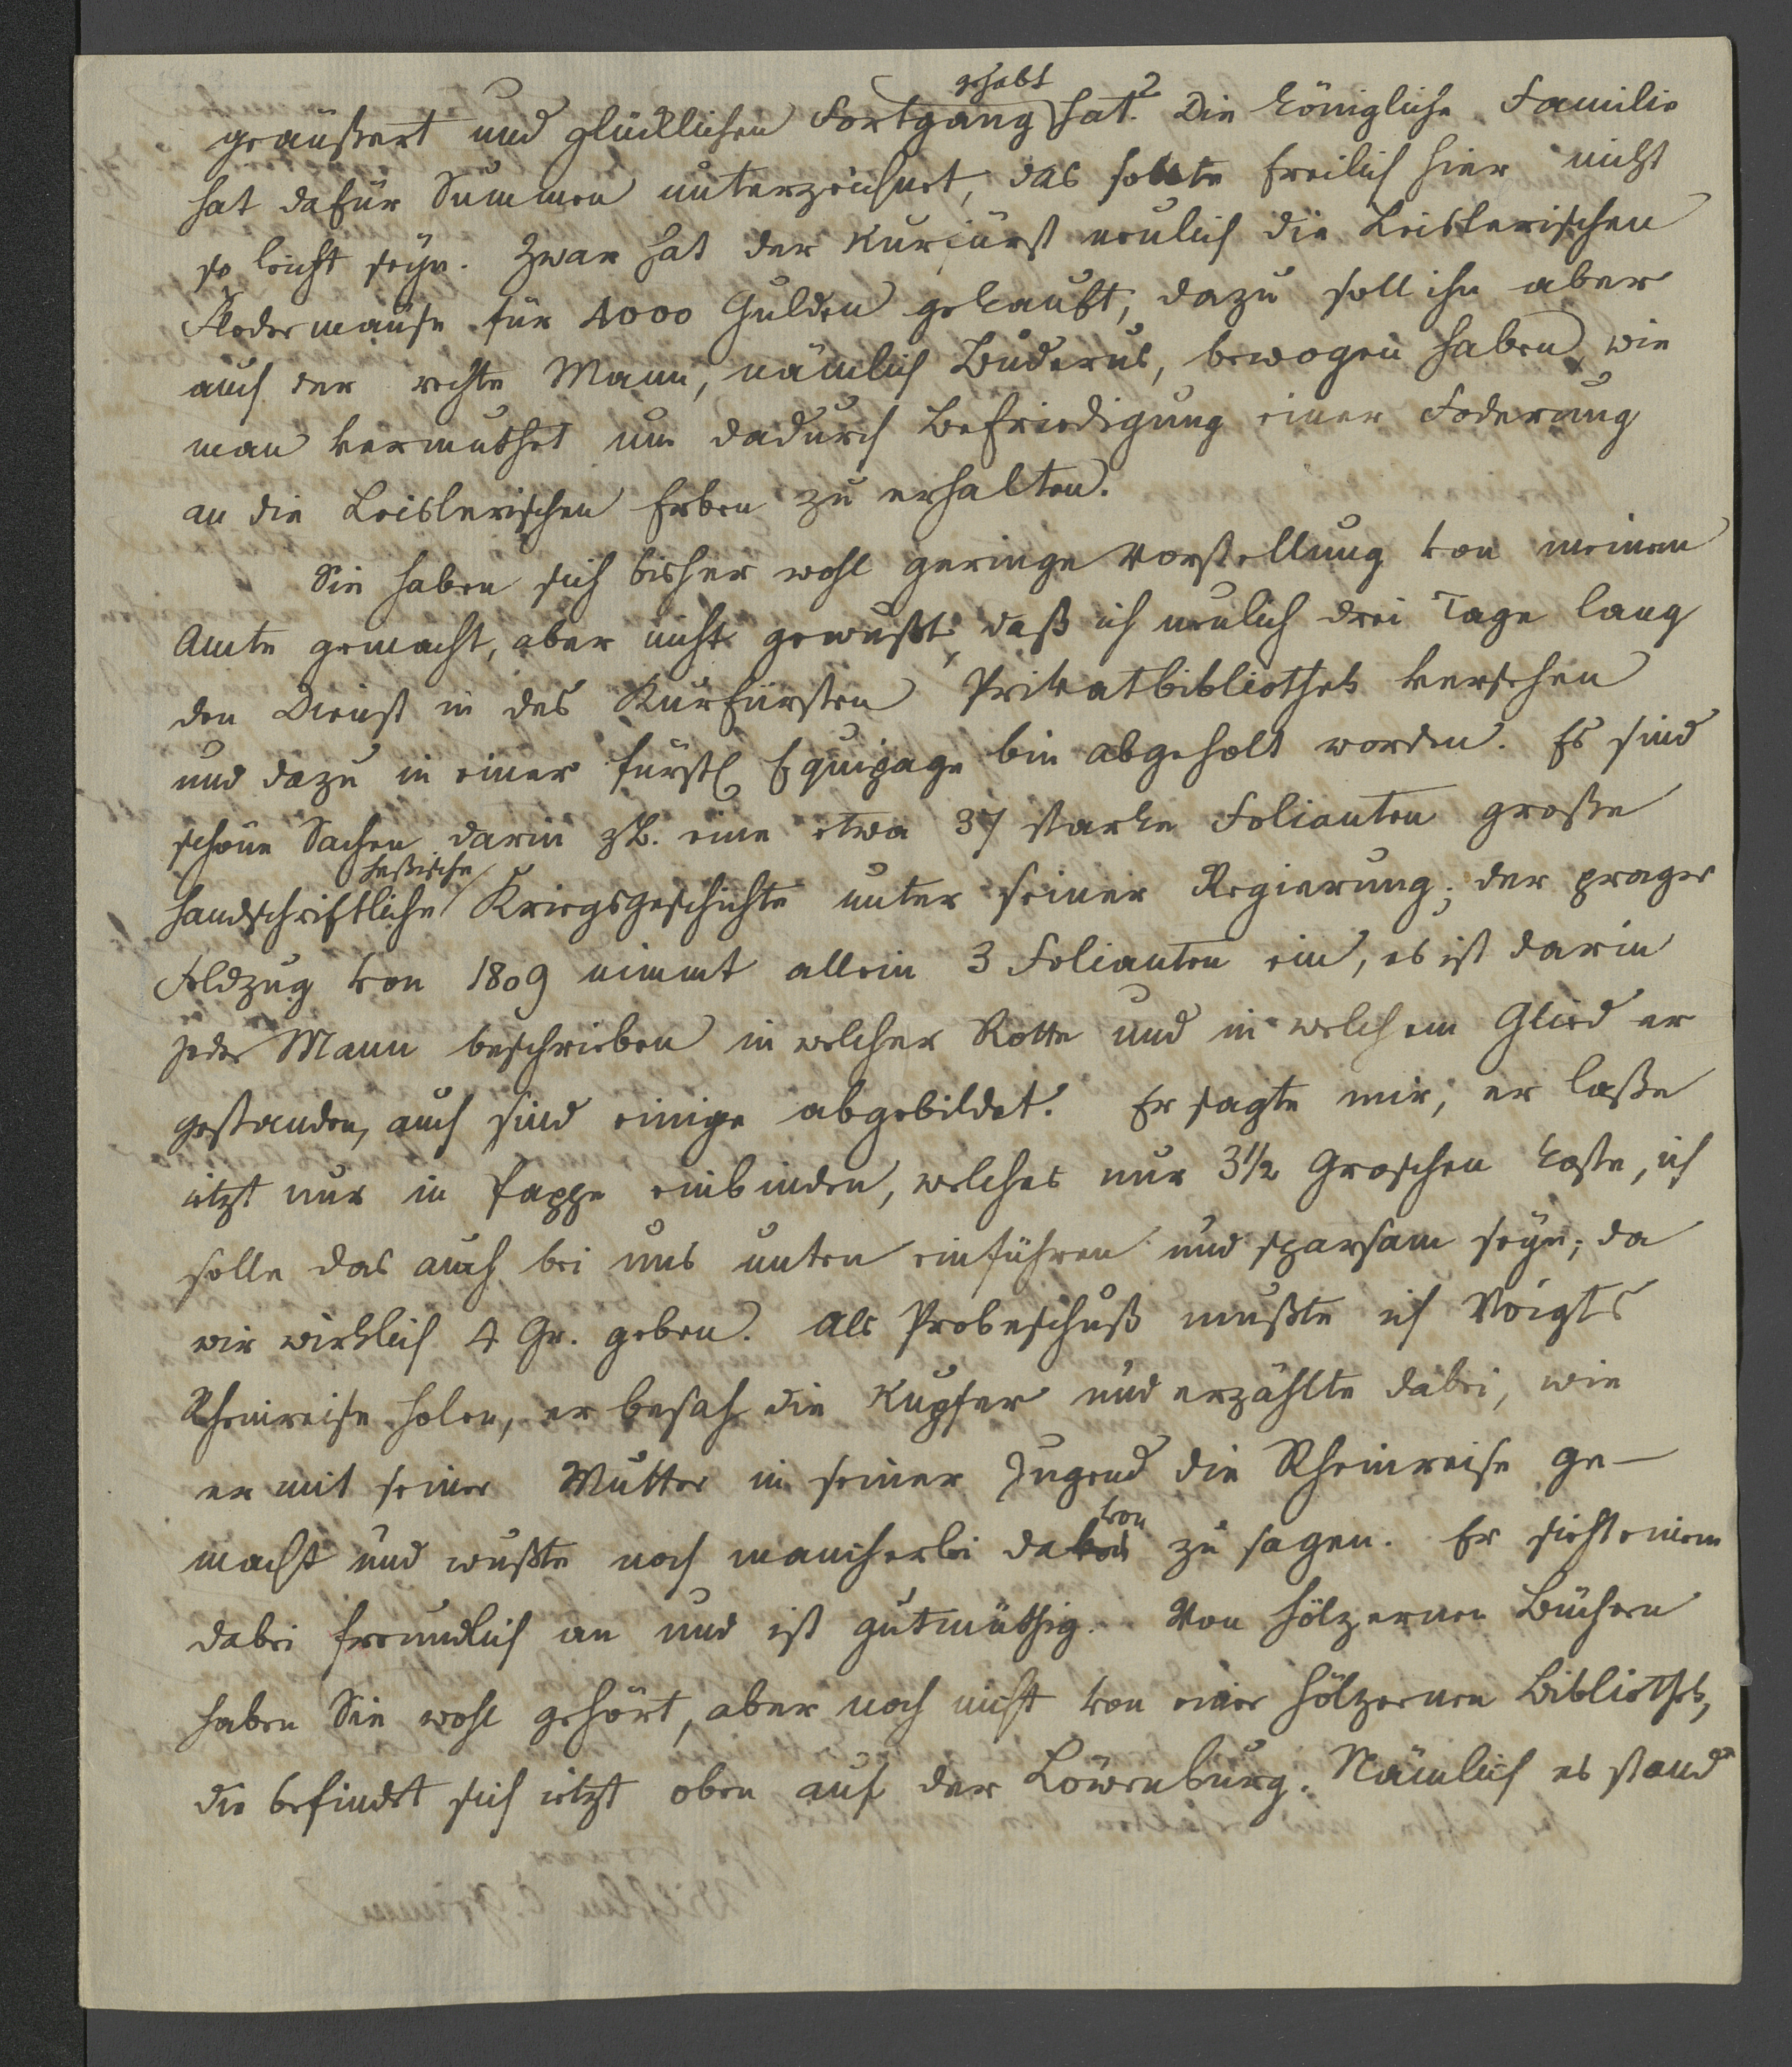 geäußert und glücklichen Fortgang gehabt hat? Die königliche Familie
hat dafür Summen unterzeichnet, das sollte freilich hier nicht
so leicht seyn. Zwar hat der Kurfürst neulich die Leislerischen
Fledermäuse für 4000 Gulden gekauft, dazu soll ihn aber
auch der rechte Mann, nämlich Buderus, bewogen haben, wie
man vermuthet um dadurch Befriedigung einer Foderung
an die Leislerischen Erben zu erhalten.
Sie haben sich bisher wohl geringe Vorstellung von meinem
Amte gemacht, aber nicht gewußt, daß ich neulich drei Tage lang
den Dienst in des Kurfürsten Privatbibliothek versehen
und dazu in einer fürstl Equipage bin abgeholt worden. Es sind
schöne Sachen darin zb. eine etwa 37 starke Folianten große
handschriftliche heßische Kriegsgeschichte unter seiner Regierung; der prager
Feldzug von 1809 nimmt allein 3 Folianten ein, es ist darin
jeder Mann beschrieben in welcher Rotte und in welchem Glied er
gestanden, auch sind einige abgebildet. Er sagte mir, er laße
jetzt nur in Pappe einbinden, welches nur 3½ Groschen koste, ich
solle das auch bei uns unten einführen und sparsam seyn; da
wir wirklich 4 Gr. geben. Als Probeschuß mußte ich Voigts
Rheinreise holen, er besah die Kupfer und erzählte dabei, wie
er mit seiner Mutter in seiner Jugend die Rheinreise ge-
macht und wußte noch mancherlei davon zu sagen. Er sieht einem
dabei freundlich an und ist gutmüthig. Von hölzernen Büchern
haben Sie wohl gehört, aber noch nicht von einer hölzernen Bibliothek,
die befindet sich jetzt oben auf der Löwenburg. Nämlich es stand